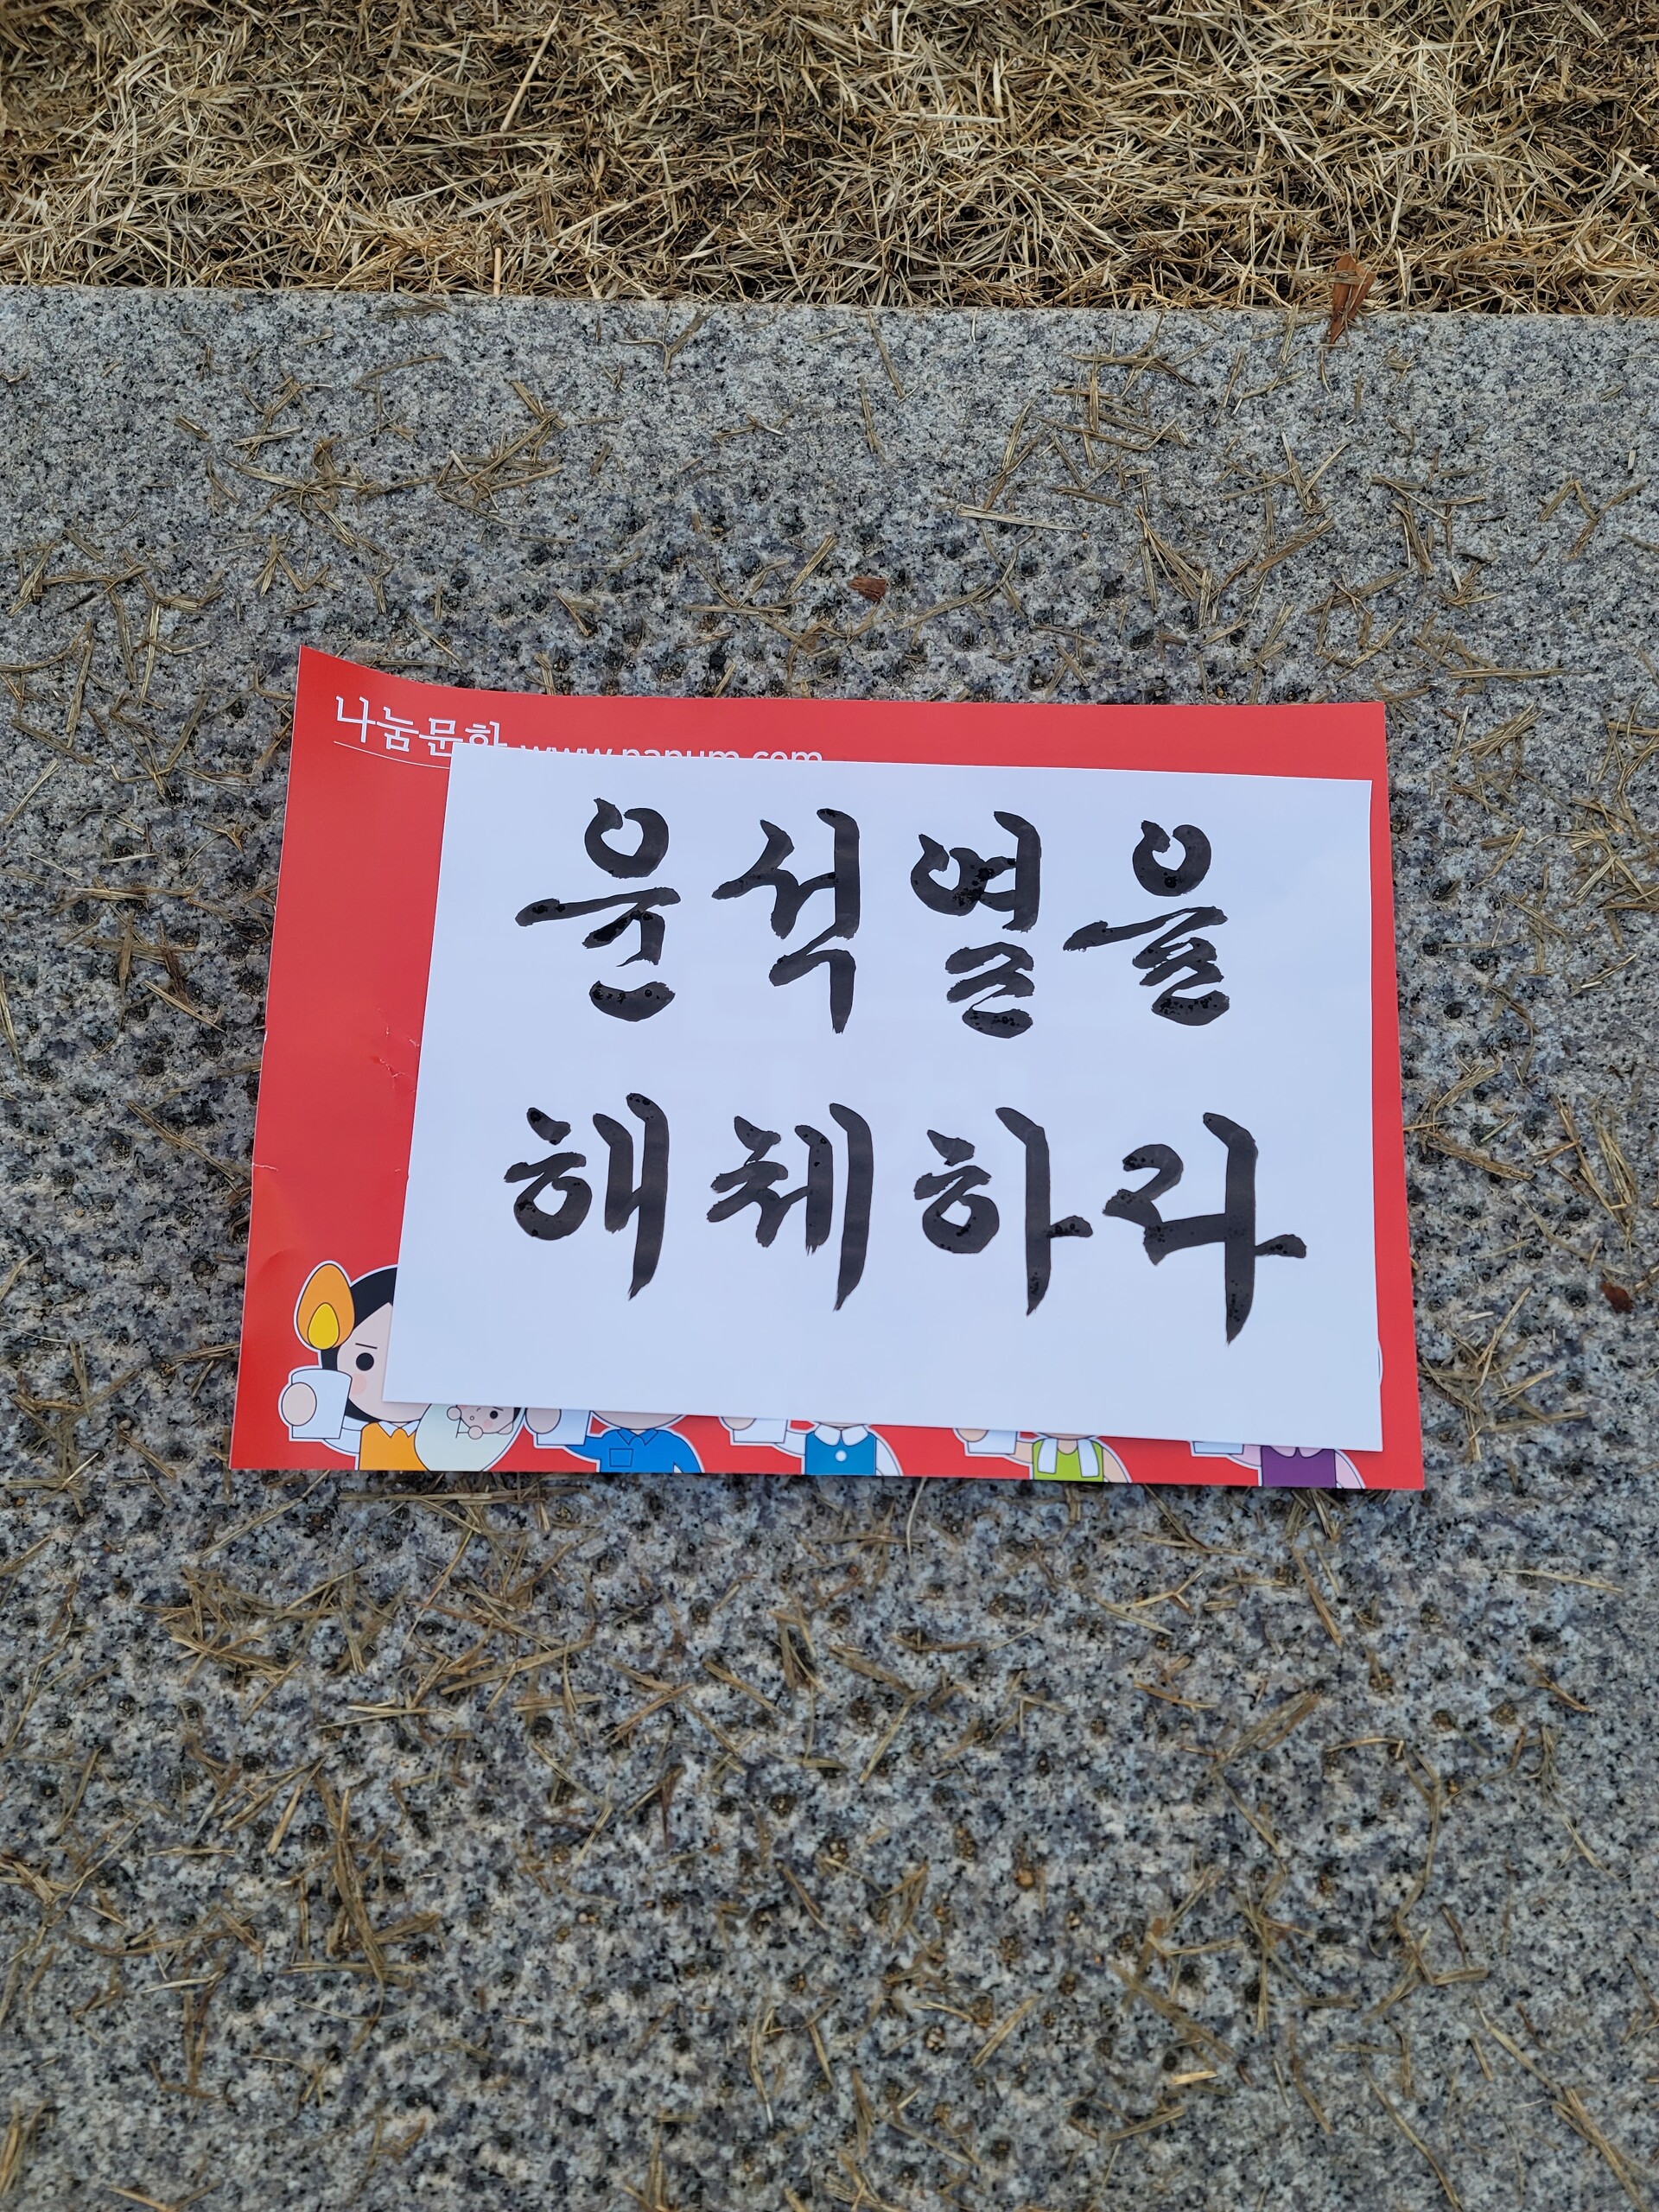 나눔문화 www.nanum.com
윤석열을
해체하라